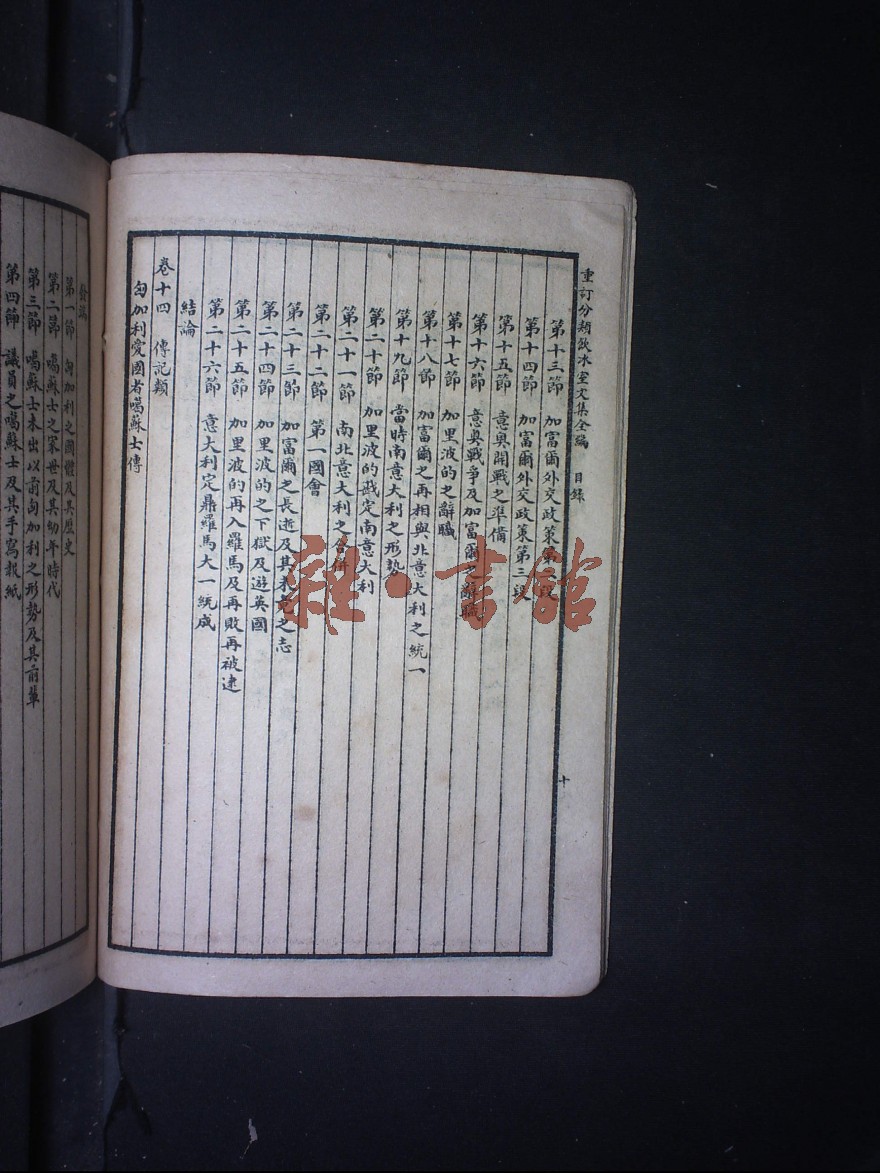 重訂分類飲冰室文集全編 目錄
十
第十三節 加富爾外交政策第二段
第十四節 加富爾外交政策第三段
第十五節 意奧開戰之準備
第十六節 意奧戰爭及加富爾之辭職
第十七節 加里波的之辭職
第十八節 加富爾之再相與北意大利之統一
第十九節 當時南意大利之形勢
第二十節 加里波的戡定南意大利
第二十一節 南北意大利之合併
第二十二節 第一國會
第二十三節 加富爾之長逝及其未竟之志
第二十四節 加里波的之下獄及遊英國
第二十五節 加里波的再入羅馬及再敗再被逮
第二十六節 意大利定鼎羅馬大一統成
結論
卷十四 傳記類
匈加利愛國者噶蘇士傳
發端
第一節 匈加利之國體及其歷史
第二節 噶蘇士之家世及其幼年時代
第三節 噶蘇士未出以前匈加利之形勢及其前輩
第四節 議員之噶蘇士及其手寫報紙
雜·書館